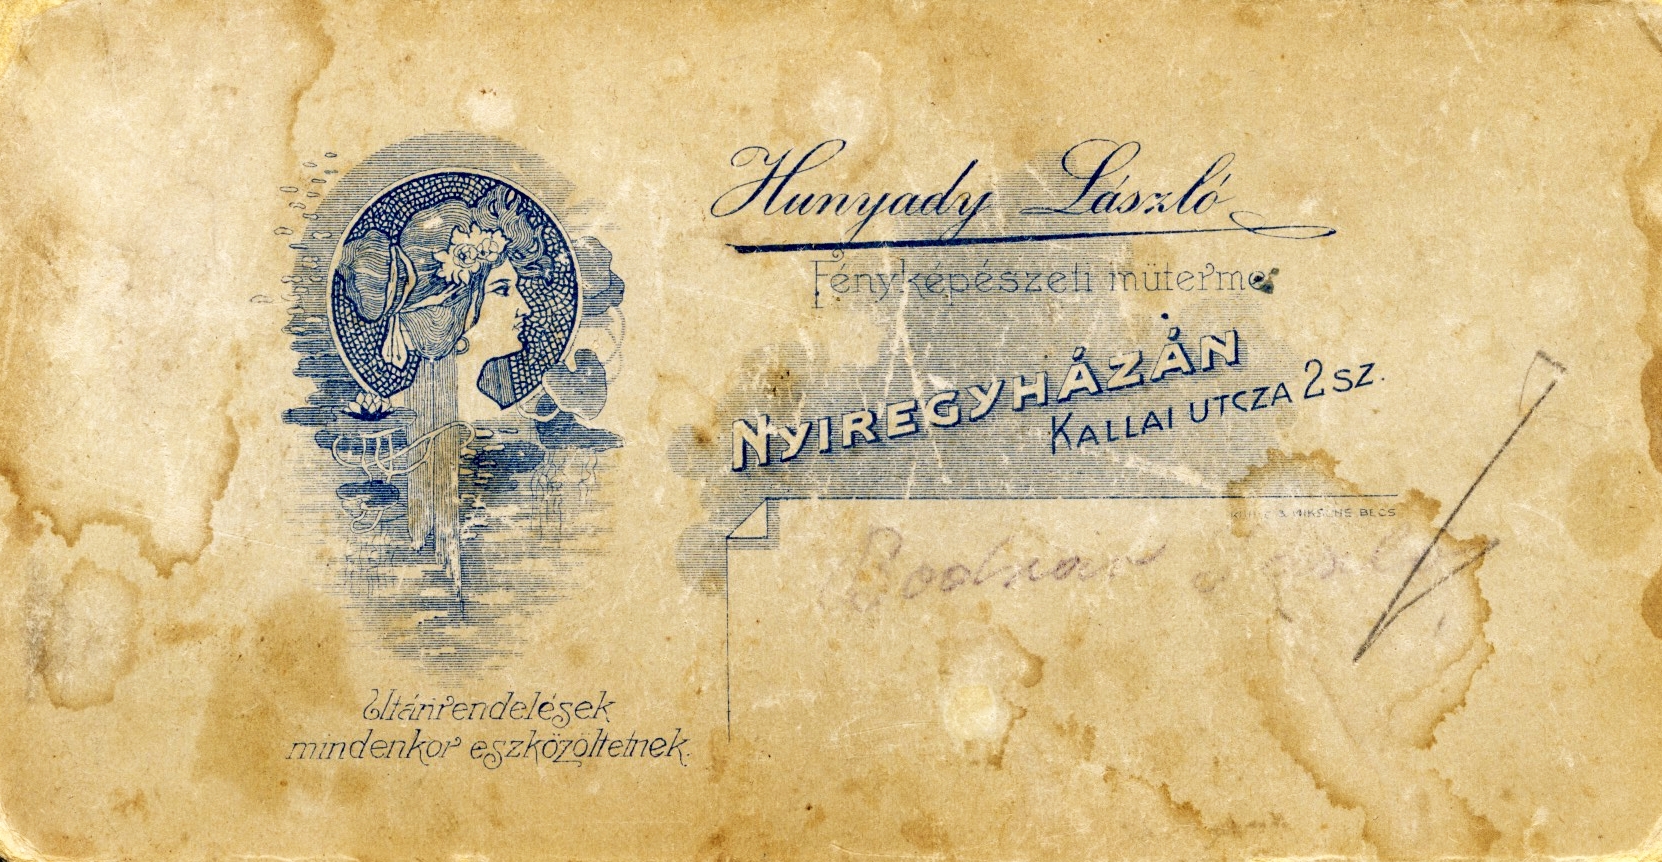 Hunyady László
Fényképészeti műterme
NYIREGYHÁZÁN
KALLAI UTCZA 2 SZ.
& MIKSCHE BÉCS
Utánrendelések
mindenkor eszközöltetnek.